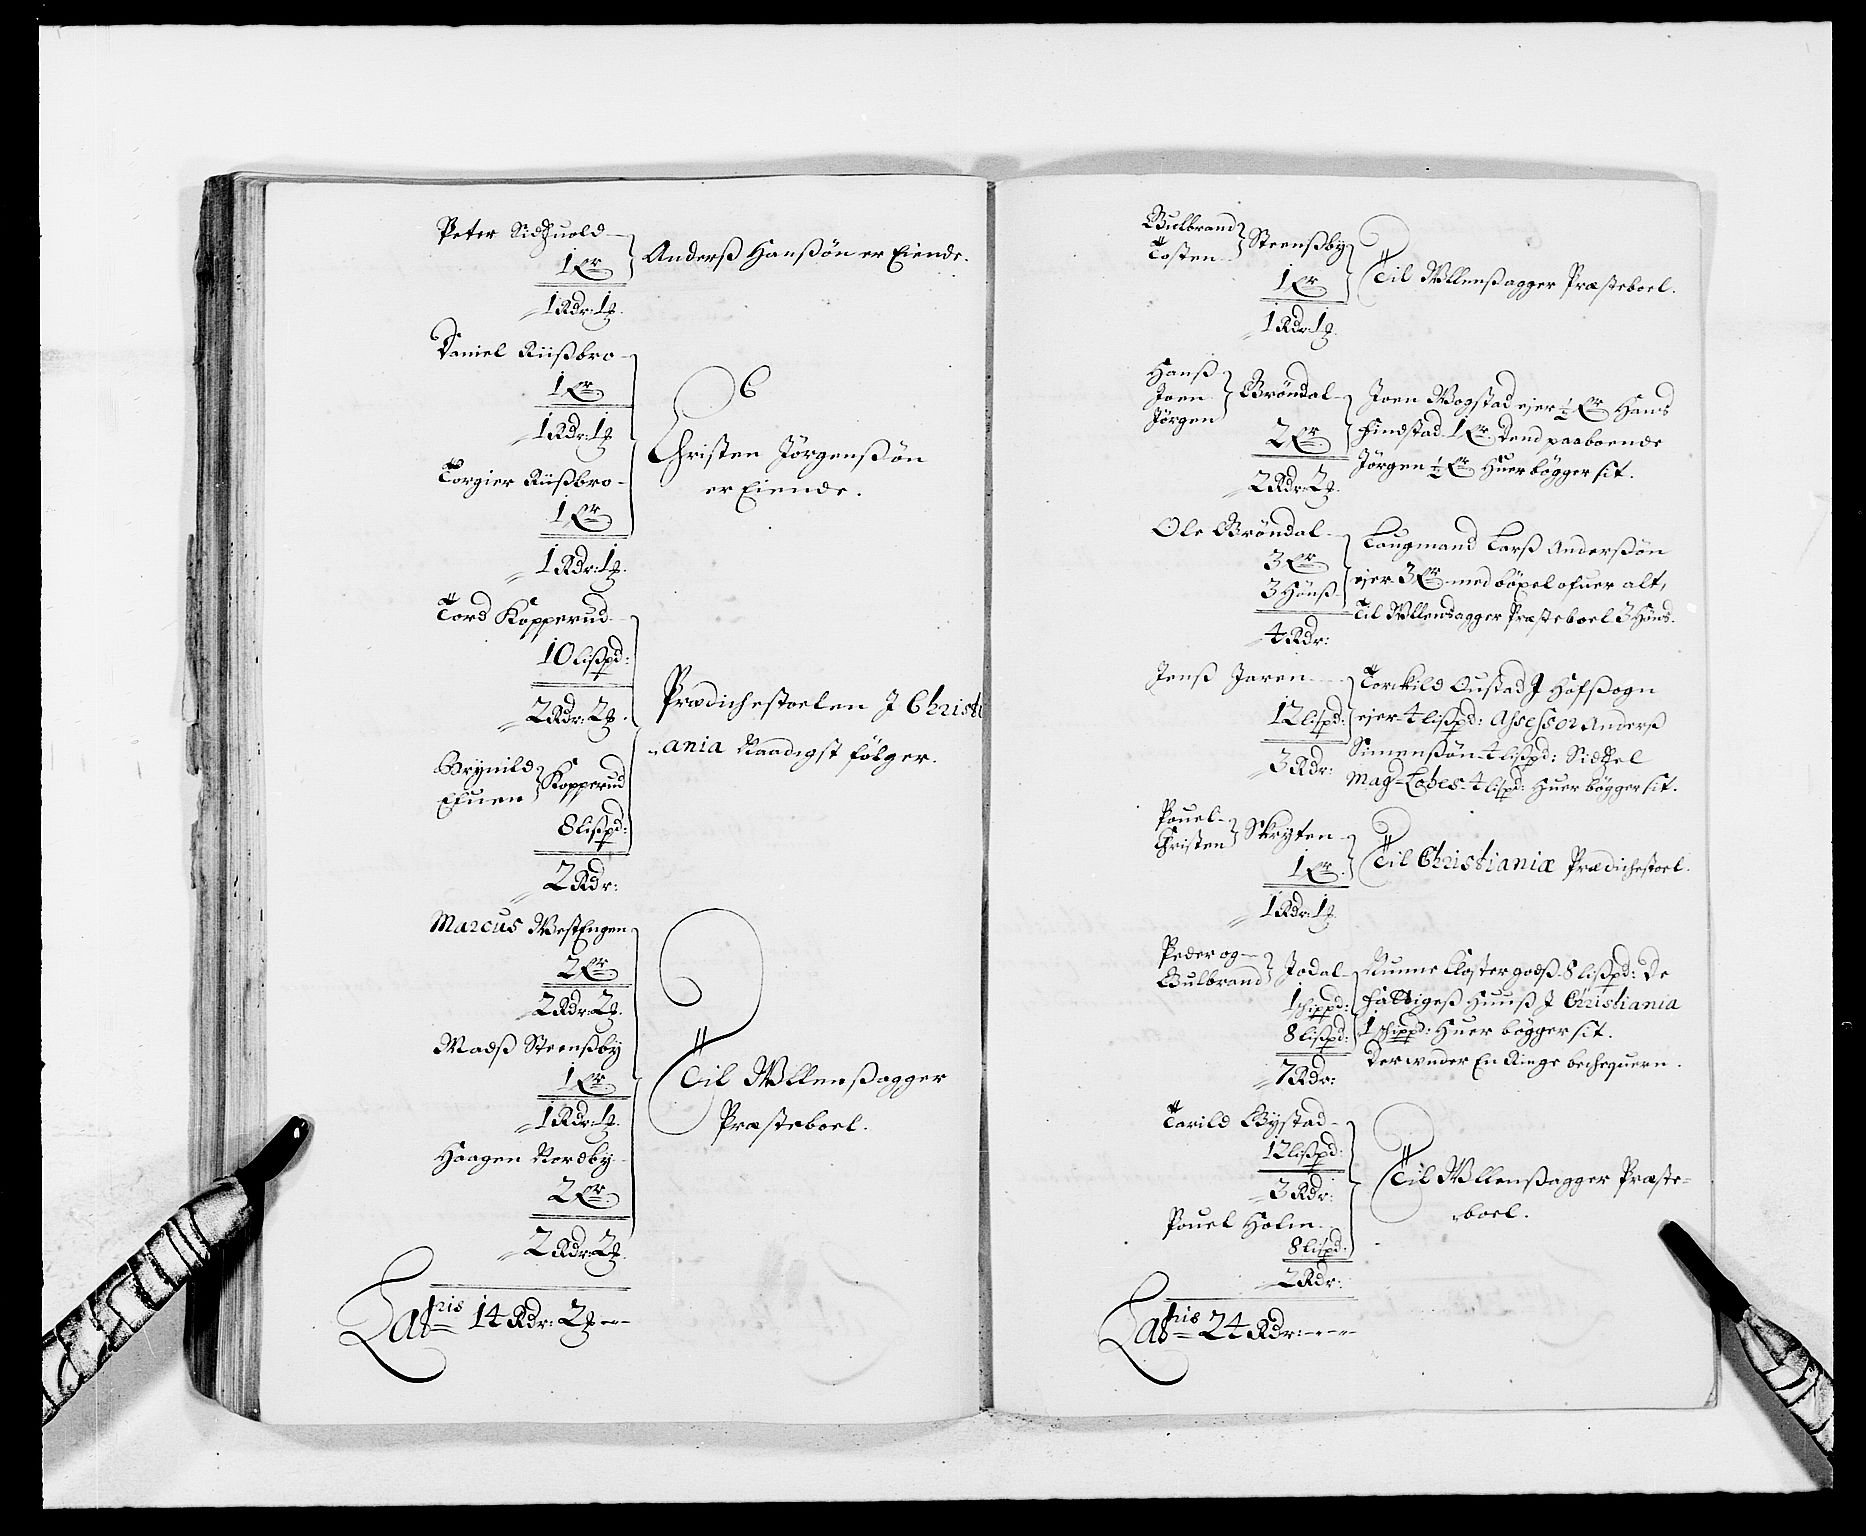 Peter Sidzuold
1 ℔r
1 Rdr: 1 ₰.
Anderß Hanßøn er Eiende.
Daniel Riißbro
1 ℔r
1 Rdr: 1 ₰
Torgier Riißbro
1 ℔r
1 Rdr: 1 ₰.
Christen Jørgenßøn
er Eiende.
Tord Kopperud
10 lißpd:
2 Rdr: 2 ₰.
Brynild
Efuen
Kopperud
8 lißpd:
2 Rdr:
Prædichestoelen J Christi
ania Naadigst følger.
Marcus WestEngen
2 ℔r
2 Rdr: 2 ₰.
Madß Steenßby
1 ℔r
1 Rdr: 1 ₰.
Haagen Nordby
2 ℔r
2 Rdr: 2 ₰.
Til Wllenßagger
Præsteboel.
Latris 14 Rdr: 2 ₰
Gulbrand
Tosten
Steenßby
1 ℔r
1 Rdr: 1 ₰.
Til Wllenßagger Præsteboel.
Hanß
Joen
Jørgen
Brøndal
2 ℔r
2 Rdr: 2 ₰.
Joen Wogstad ejer ½ ℔r Hans
Findstad 1 ℔r. Dend paaboende
Jørgen ½ ℔r Huer bøgger sit.
Ole Brøndal
3 ℔r
3 Hunß
4 Rdr:
Laugmand Larß Anderßøn
ejer 3 ℔r med bøxel ofuer alt,
Til Wllensagger Præsteboel 3 Huds.
Jenß Jaren
12 lispd:
3 Rdr:
Torckild Oustad J Hofßogn
ejer 4 lißpd: Assessor Anderß
Simenßøn 4 lißpd: Sidzel
Mag-Lobes 4 lispd: Huer bøgger sit.
Pouel
Christen
Skryten
1 ℔r
1 Rdr: 1 ₰.
Til Christianiæ Prædichestoel.
Peder og
Gulbrand
Jodal
1 schippd:
8 lißpd:
7 Rdr:
Nunne Closter godß 8 lißpd: De
Fattigeß Huuß J Christiania
1 schippd: Huer bøgger sit.
Der wnder En Ringe bechequern.
Tarild Bystad
12 lißpd:
3 Rdr:
Pouel Holm
8 lispd:
2 Rdr:
Til Wllenßagger Præste-
boel.
Latris 24 Rdr: